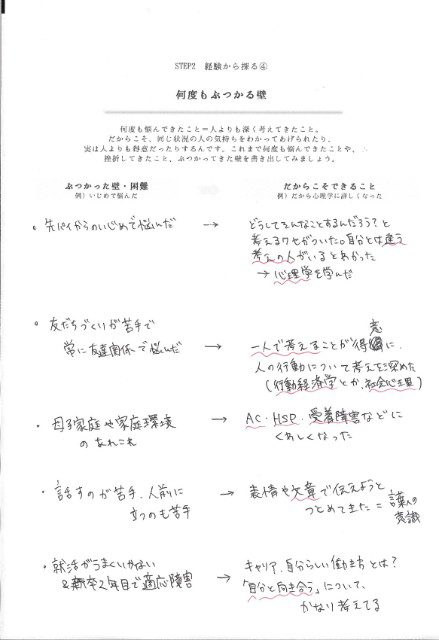 STEP2 経験から探る④
何度もぶつかる壁
何度も悩んできたこと=人よりも深く考えてきたこと。
だからこそ、同じ状況の人の気持ちをわかってあげられたり、
実は人よりも得意だったりするんです。これまで何度も悩んできたことや、
挫折してきたこと、ぶつかってきた壁を書き出してみましょう。
ぶつかった壁・困難
例)いじめで悩んだ
だからこそできること
例)だから心理学に詳しくなった
・先パイからのいじめで悩んだ
→ どうしてそんなことするんだろう?と
考えるクセがついた。自分とは違う
考えの人がいるとわかった
→ 心理学を学んだ
・友だちづくりが苦手で
常に友達関係で悩んだ
→ 一人で考えることが得意に、
人の行動について考えを深めた
(行動経済学とか、社会心理)
・母子家庭や家庭環境
のあれこれ
→ AC・HSP・愛着障害などに
くわしくなった
・話すのが苦手、人前に
立つのも苦手
→ 表情や文章で伝えようと
つとめてきた = 言葉への
意識
・就活がうまくいかない
&新卒2年目で適応障害
→ キャリア、自分らしい働き方とは?
「自分と向き合う」について、
かなり考えてる